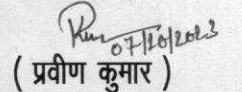 07/10/2023
( प्रवीण कुमार )